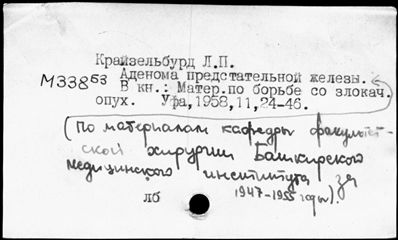 Крайзельбурд Л.П.
М33863 Аденома предстательной железы.
В кн.: Матер.по борьбе со злокач.
опух. Уфа,1958,11,24-46.
(по материалам кафедры факультет-
ской хирургии Башкирского
медицинского института за
1947-1955 годы).
лб